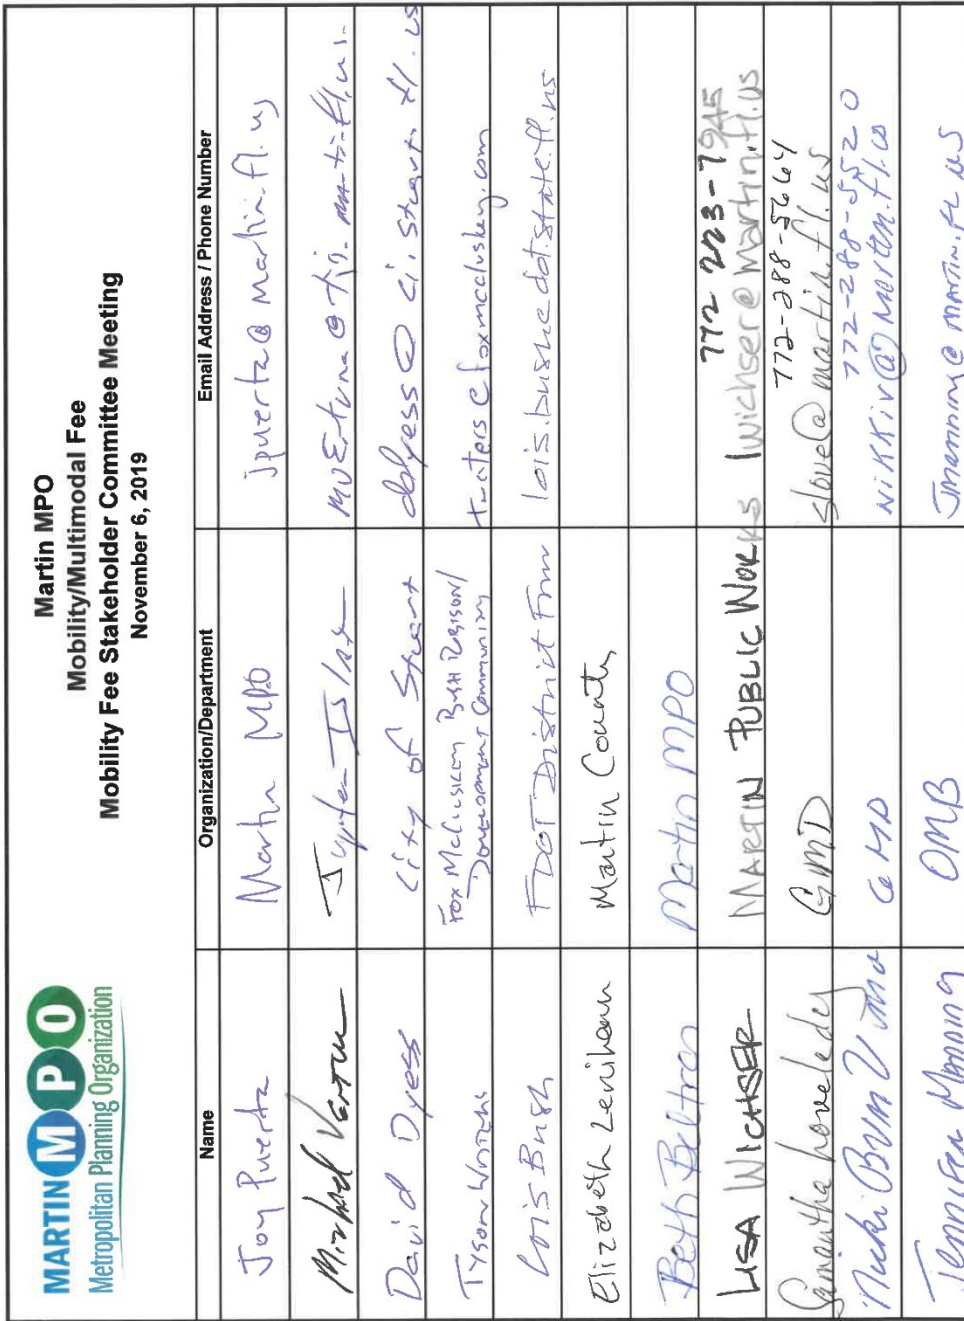 MARTIN MPO
Metropolitan Planning Organization
Martin MPO
Mobility/Multimodal Fee
Mobility Fee Stakeholder Committee Meeting
November 6, 2019
Name Organization/Department Email Address / Phone Number
Joy Puerta Martin MPO jpuerta@martin.fl.us
Michael Jupiter Island
David Dyess City of Stuart ddyess@ci.stuart.fl.us
Tyson Waters Fox McCluskey Bush Robison/
Development Community twaters@foxmccluskey.com
Lois Bush FDOT District Four lois.bush@dot.state.fl.us
Elizabeth Lenihan Martin County
Beth Beltran Martin MPO
772 223-7945
LISA WICHSER MARTIN PUBLIC WORKS lwichser@martin.fl.us
772-288-5664
Samantha Lovelady GMD slove@martin.fl.us
772-288-5520
Nicki GMD NiKKiv@martin.fl.us
Jennifer Manning OMB Jmanning@martin.fl.us